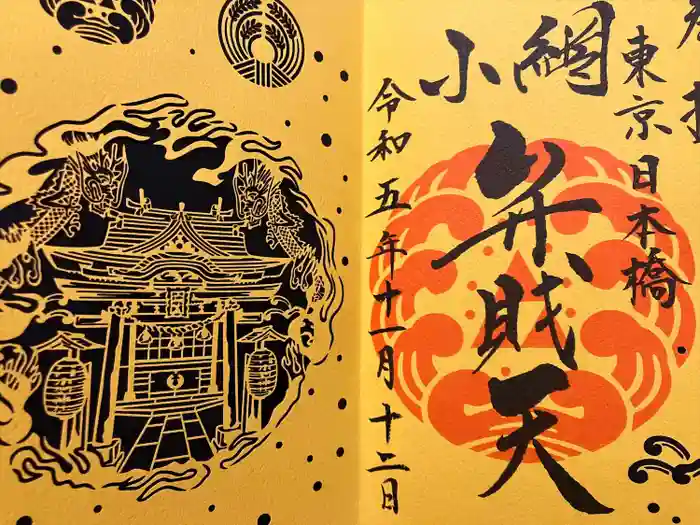 奉拝
東京日本橋
小網
弁財天
令和五年十一月十二日